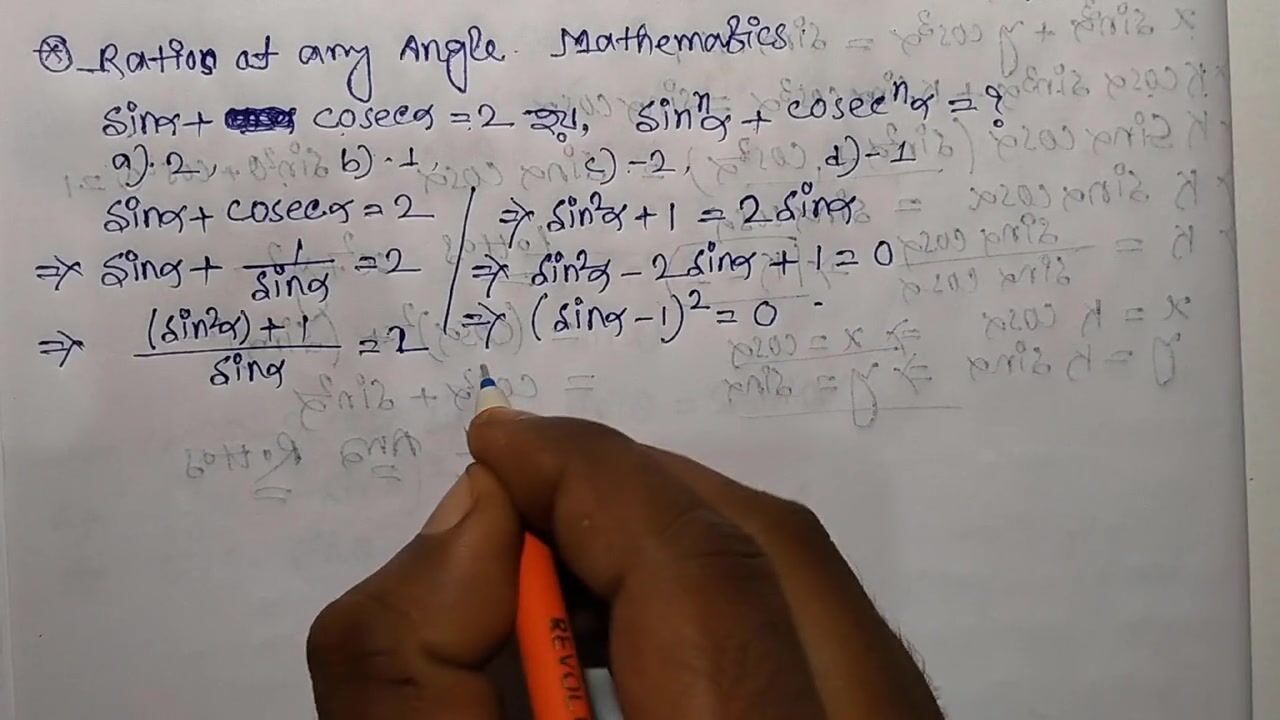 ⊛ Ratios at any Angle. Mathematics
sinα + cosecα = 2 হয়, sinⁿα + cosecⁿα = ?
a). 2, b). 1, c) -2, d) -1
sinα + cosecα = 2
⇒ sinα + 1/sinα = 2
⇒ (sin²α) + 1 / sinα = 2
⇒ sin²α + 1 = 2 sinα
⇒ sin²α - 2 sinα + 1 = 0
⇒ (sinα - 1)² = 0
REVOL